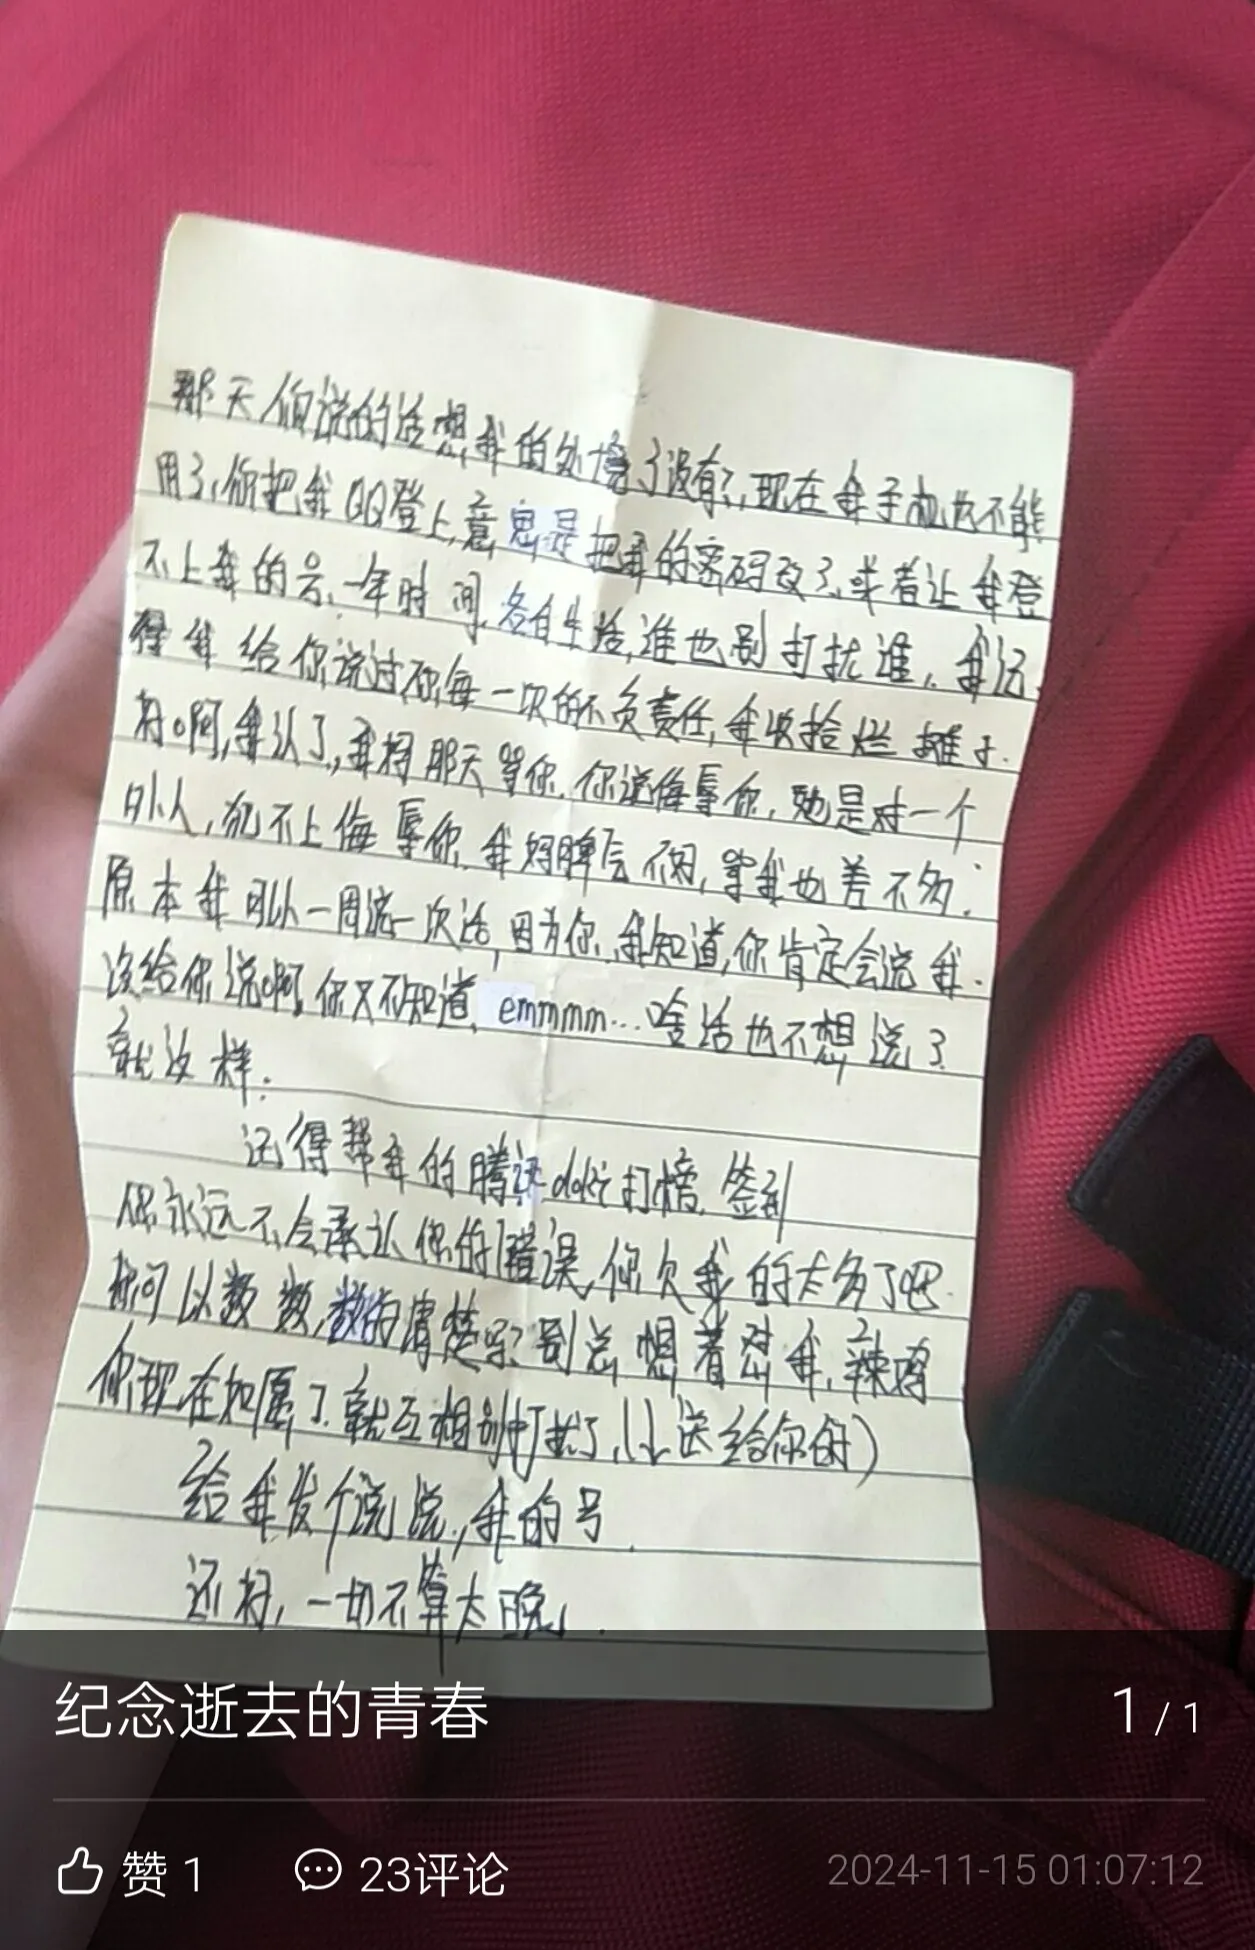 那天你说的话想我的处境了没有?,现在我手机也不能
用了,你把我QQ登上,意思是把我的密码改了,或者让我登
不上我的号,一年时间,各自生活,谁也别打扰谁,我记
得我给你说过你每一次的不负责任,我收拾烂摊子.
好啊,我认了,我妈那天等你,你说侮辱你,她是对一个
外人,犯不上侮辱你.我妈脾气不好,等我也差不多.
原本我可以一周说一次话,因为你,我知道,你肯定会说我.
没给你说啊,你又不知道,emmmm...啥话也不想说了
就这样.
还得帮我的腾讯 打榜,签到
你永远不会承认你的错误,你欠我的太多了吧.
你可以数数,数的清楚吗?别总想着怼我,辣鸡
你现在如愿了.就互相别打扰了,(送给你的)
给我发个说说,我的号.
还好,一切不算太晚.
纪念逝去的青春
1/1
赞 1 23评论 2024-11-15 01:07:12